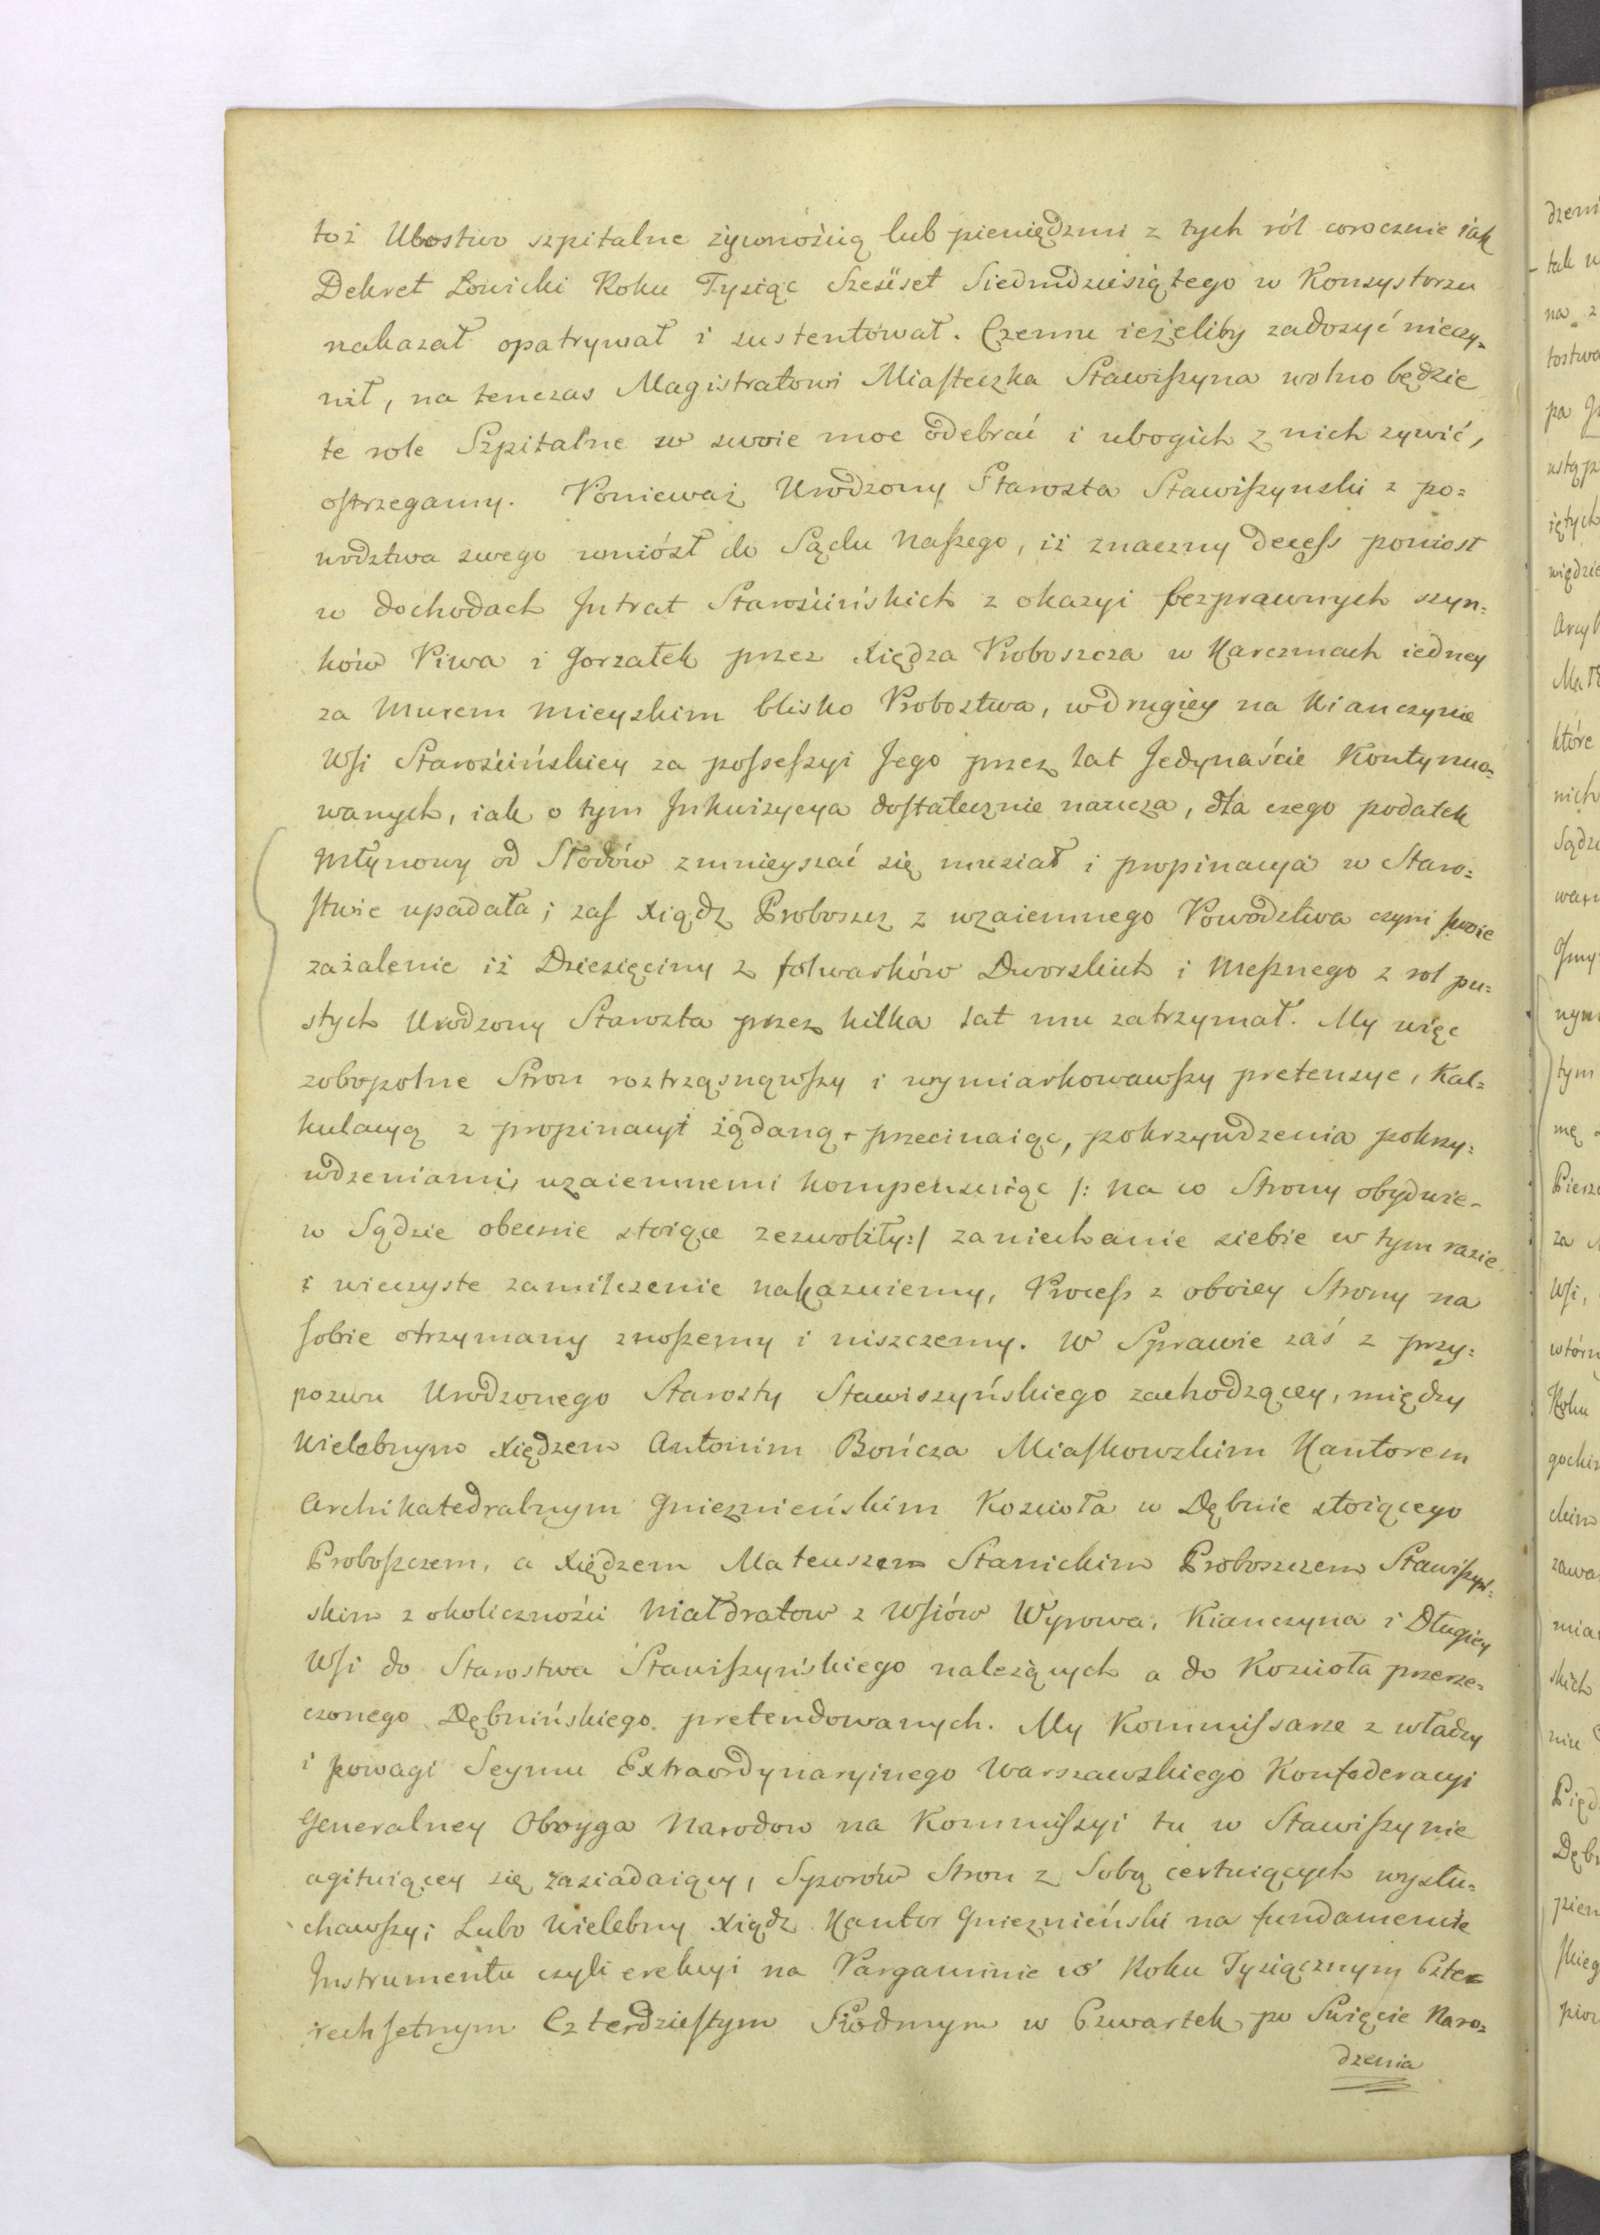 toż Ubostwo szpitalne żywnością lub pieniędzmi z tych ról corocznie iak
Dekret Łowicki Roku Tysiąc Szesśet Siedmdziesiątego w Konsystorzu
nakazał opatrywał i sustentował. Czemu ieżeliby zadosyć nieczy=
nił, na tenczas Magistratowi Miasteczka Stawiszyna wolno będzie
te role Szpitalne w swoie moc odebrać i ubogich z nich zywić,
ostrzegamy. Ponieważ Urodzony Starosta Stawiszynski z po=
wodztwa swego wniósł do Sądu naszego, iż znaczny decess poniost
w dochodach Intrat Starościńskich z okazyi bezprawnych szyn=
ków Piwa i Gorzałek przez Xiędza Proboszcza w Karczmach iedney
za Murem mieyskim blisko Probostwa, w drugiey na Kianczynie
Wsi Starościńskiey za possessyi Jego przez lat Jedynaście Kontynuo=
wanych, iak o tym Inkwizycya dostatecznie naucza, dla czego podatek
młynowy od Słodów zmnieyszać się musiał i propinacya w Staro=
stwie upadała; zas Xiądz Proboszcz z wzaiemnego Powodztwa czyni swoie
zażalenie iż Dziesięciny z folwarków Dworskich i Mesznego z rol pu=
stych Urodzony Starosta przez kilka lat mu zatrzymał. My więc
zobopolne Stron roztrząsnąwszy i wymiarkowawszy pretensye, Kal=
kulacyą z propinacyi żądaną przecinaiąc, pokrzywdzenia pokrzy=
wdzeniami wzaiemnemi kompensuiąc /: na co Strony obydwie
w Sądzie obecnie stoiące zezwoliły:/ zaniechanie siebie w tym razie
i wieczyste zamilczenie nakazuiemy, Process z oboiey Strony na
sobie otrzymany znoszemy i niszczemy. W Sprawie zaś z przy=
pozwu Urodzonego Starosty Stawiszyńskiego zachodzącey, między
Wielebnym Xiędzem Antonim Bończa Miaskowskim Kantorem
Archikatedralnym Gnieznieńskim Koscioła w Dębnie stoiącego
Proboszczem, a Xiędzem Mateuszem Stanickim Proboszczem Stawiszyń=
skim z okoliczności Małdratow z Wsiów Wyrowa, Kianczyna i Długiey
Wsi do Starostwa Stawiszyńskiego należących a do Kosciola przerze=
czonego Dębnińskiego pretendowanych. My Kommissarze z władzy
i powagi Seymu Extraordynaryinego Warszawskiego Konfederacyi
Generalney Oboyga Narodow na Kommissyi tu w Stawiszynie
agituiącey się zasiadaiący, Sporów Stron z Sobą certuiących wysłu=
chawszy; Lubo Wielebny Xiądz Kantor Gnieznieński na fundamencie
Instrumentu czyli erekcyi na Pargaminie w Roku Tysiącznym Czte=
rechsetnym Czterdziestym Siodmym w Czwartek po Swięcie Naro=
dzenia